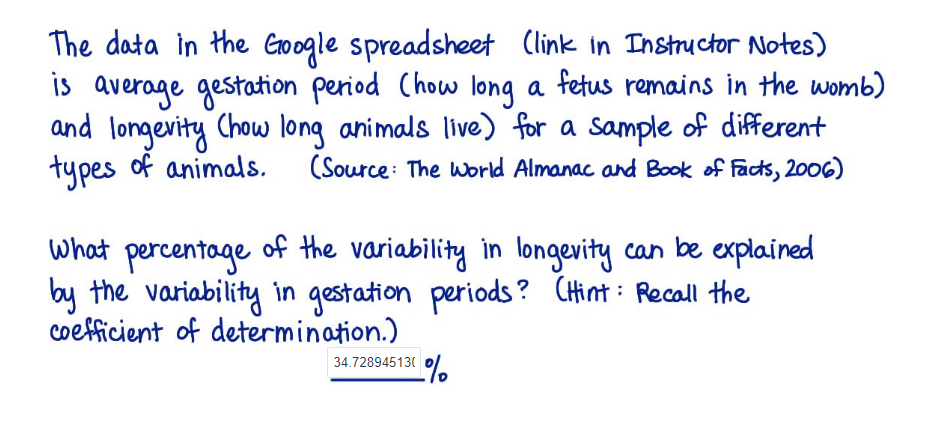 The data in the Google spreadsheet (link in Instructor Notes)
is average gestation period (how long a fetus remains in the womb)
and longevity (how long animals live) for a sample of different
types of animals. (Source: The World Almanac and Book of Facts, 2006)
What percentage of the variability in longevity can be explained
by the variability in gestation periods? (Hint: Recall the
coefficient of determination.)
34.728945130 %